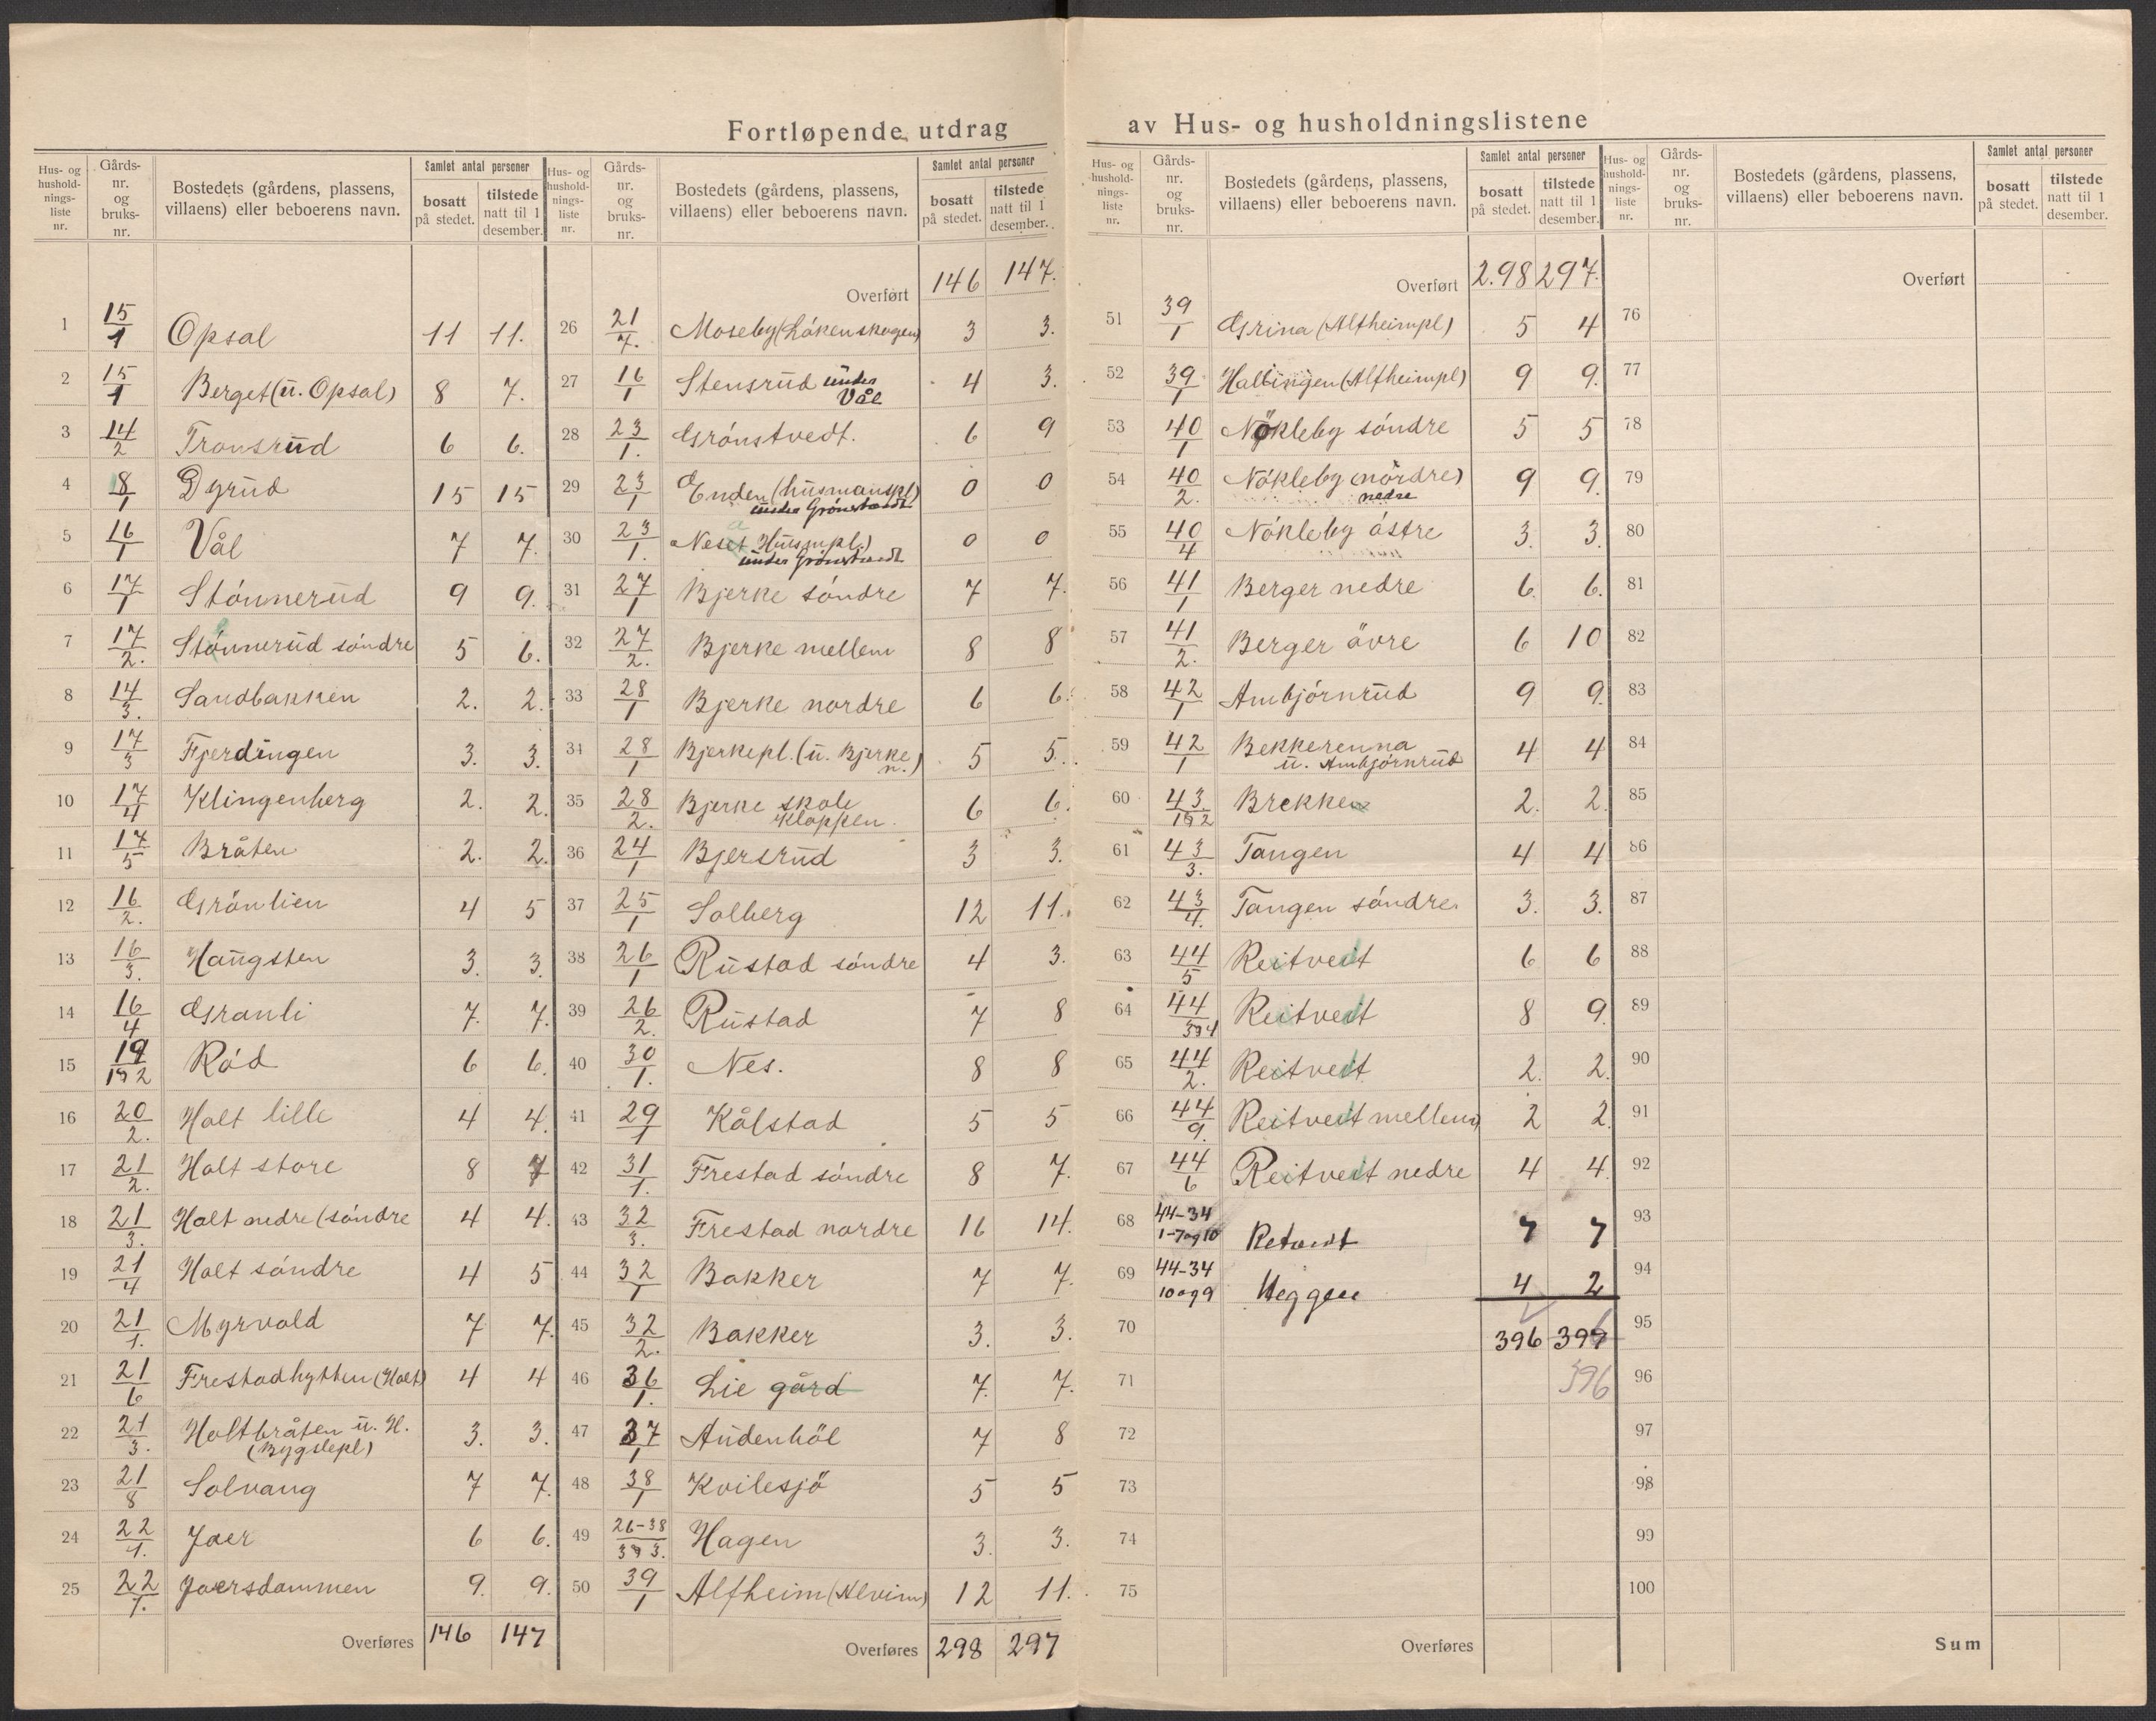 Fortløpende utdrag av Hus- og husholdningslistene
Hus- og hushold-nings-liste nr. Gårds-nr. og bruks-nr. Bostedets (gårdens, plassens, villaens) eller beboerens navn. Samlet antal personer bosatt på stedet. tilstede natt til 1 desember.
1 15/1 Opsal 11 11.
2 15/1 Berget (u. Opsal) 8 7.
3 14/2 Tronsrud 6 6.
4 18/1 Dyrud 15 15
5 16/1 Vål 7 7.
6 17/1 Stónnerud 9 9.
7 17/2. Stónnerud sóndre 5 6.
8 14/3. Sandbakken 2. 2.
9 17/3 Fjerdingen 3. 3.
10 17/4 Klingenberg 2. 2.
11 17/5 Bråten 2. 2.
12 16/2. Grönlien 4 5
13 16/3. Haugsten 3. 3.
14 16/4 Granli 7. 7.
15 19/1og2 Ród 6 6.
16 20/2. Holt lille 4 4.
17 21/2. Holt store 8 7
18 21/3. Holt nedre (sóndre 4 4.
19 21/4 Holt sóndre 4 5
20 21/1. Myrvold 7 7.
21 21/6 Frestadhytten (Holt) 4 4
22 21/3. Holtbråten u. H.
(Bygslepl) 3. 3.
23 21/8 Solvang 7 7.
24 22/1. Joer 6 6.
25 22/1. Joersdammen 9. 9.
Overføres 146 147
Hus- og hushold-nings-liste nr. Gårds-nr. og bruks-nr. Bostedets (gårdens, plassens, villaens) eller beboerens navn. Samlet antal personer bosatt på stedet. tilstede natt til 1 desember.
Overført 146 147.
26 21/7. Moseby (Lókenskogen) 3 3.
27 16/1 Stensrud under
Vål 4 3.
28 23/1. Grónstvedt. 6 9
29 23/1 Enden (husmanspl)
under Grónstvedt 0 0
30 23/1. Neset Husmpl.)
under Grónstvedt 0 0
31 27/1 Bjerke sóndre 7 7.
32 27/2. Bjerke mellem 8 8
33 28/1 Bjerke nordre 6 6.
34 28/1 Bjerkepl. (u. Bjerke
n.) 5 5.
35 28/2. Bjerke skole
Kloppen 6 6.
36 24/1 Bjersrud 3 3.
37 25/1 Solberg 12 11.
38 26/1 Rustad sóndre 4 3.
39 26/2. Rustad 7 8
40 30/1. Nes. 8 8
41 29/1 Kålstad 5 5
42 31/1. Frestad sóndre 8 7.
43 32/3. Frestad nordre 16 14.
44 32/1 Bakker 7 7.
45 32/2. Bakker 3. 3.
46 36/1. Lie gård 7. 7.
47 37/1 Audenhöl 7 8
48 38/1 Kvilesjö 5 5
49 26-38/3og3. Hagen 3. 3.
50 39/1 Alfheim (Alvim) 12 11.
Overføres 298 297
Hus- og hushold-nings-liste nr. Gårds-nr. og bruks-nr. Bostedets (gårdens, plassens, villaens) eller beboerens navn. Samlet antal personer bosatt på stedet. tilstede natt til 1 desember.
Overført 2.98 297.
51 39/1 Grina (Alfheimpl) 5 4
52 39/1 Hallingen (Alfheimpl) 9 9.
53 40/1 Nökleby sóndre 5 5
54 40/2. Nökleby (nördre)
nedre 9 9.
55 40/4 Nökleby óstre 3. 3.
56 41/1 Berger nedre 6. 6.
57 41/2. Berger övre 6 10
58 42/1 Ambjórnrud 9 9.
59 42/1 Bekkerenna
u. Ambjórnrud 4 4
60 43/1og2 Brekken 2. 2.
61 43/3. Tangen 4 4
62 43/4. Tangen sóndre. 3. 3.
63 44/5 Reitveit 6 6
64 44/3og4 Reitveit 8 9.
65 44/2. Reitveit 2. 2.
66 44/9. Reitveit mellem 2 2.
67 44/6 Reitveit nedre 4 4.
68 44-34
1-7og10 Retveit 7 7
69 44-34
10og9 Heggen 4 2
70 396 399
71 396
72
73
74
75
Overføres
Hus- og hushold-nings-liste nr. Gårds-nr. og bruks-nr. Bostedets (gårdens, plassens, villaens) eller beboerens navn. Samlet antal personer bosatt på stedet. tilstede natt til 1 desember.
Overført
76
77
78
79
80
81
82
83
84
85
86
87
88
89
90
91
92
93
94
95
96
97
98
99
100
Sum